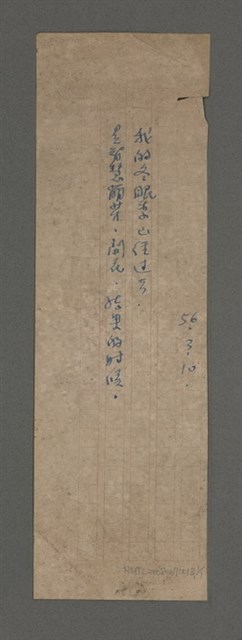 我的冬眠季已經过了．
是智慧萌芽．開花．結果的时候。
56.3.10.